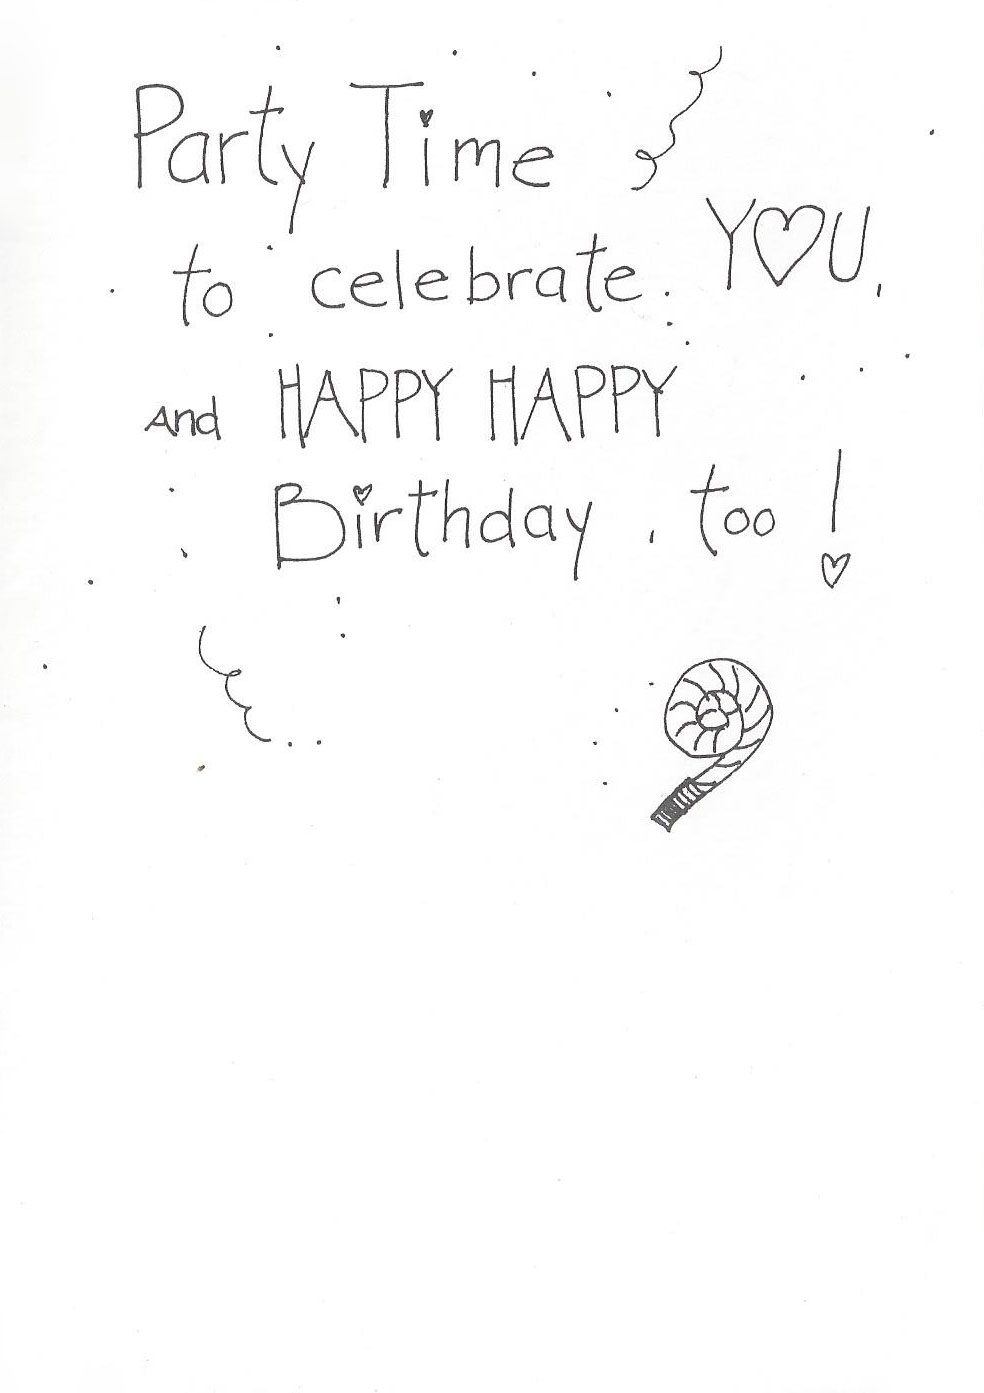 Party Time
to celebrate YOU,
And HAPPY HAPPY
Birthday, too!